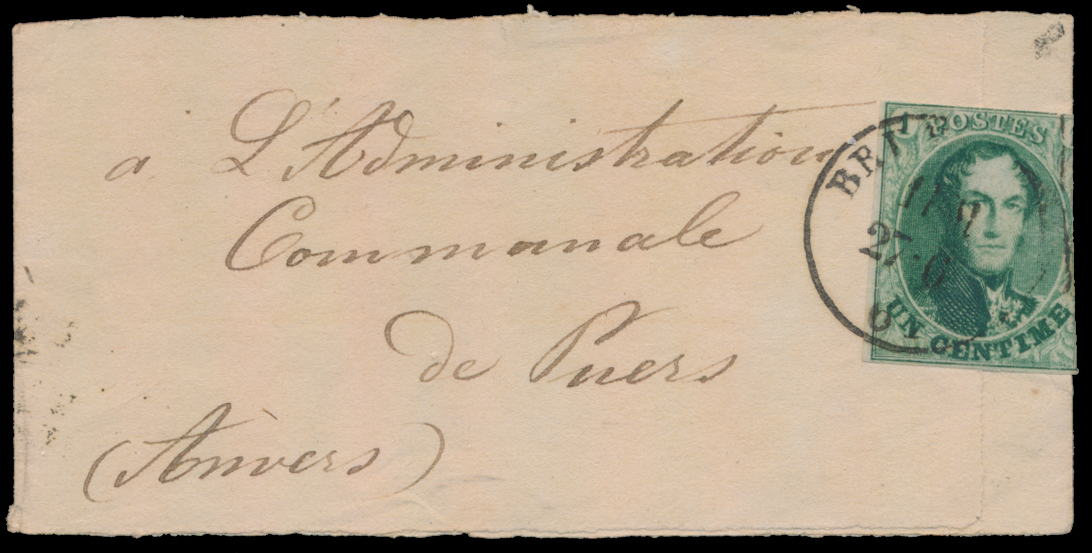 a L'Administration
Communale
de Puers
(Anvers)
1 POSTES
UN CENTIME